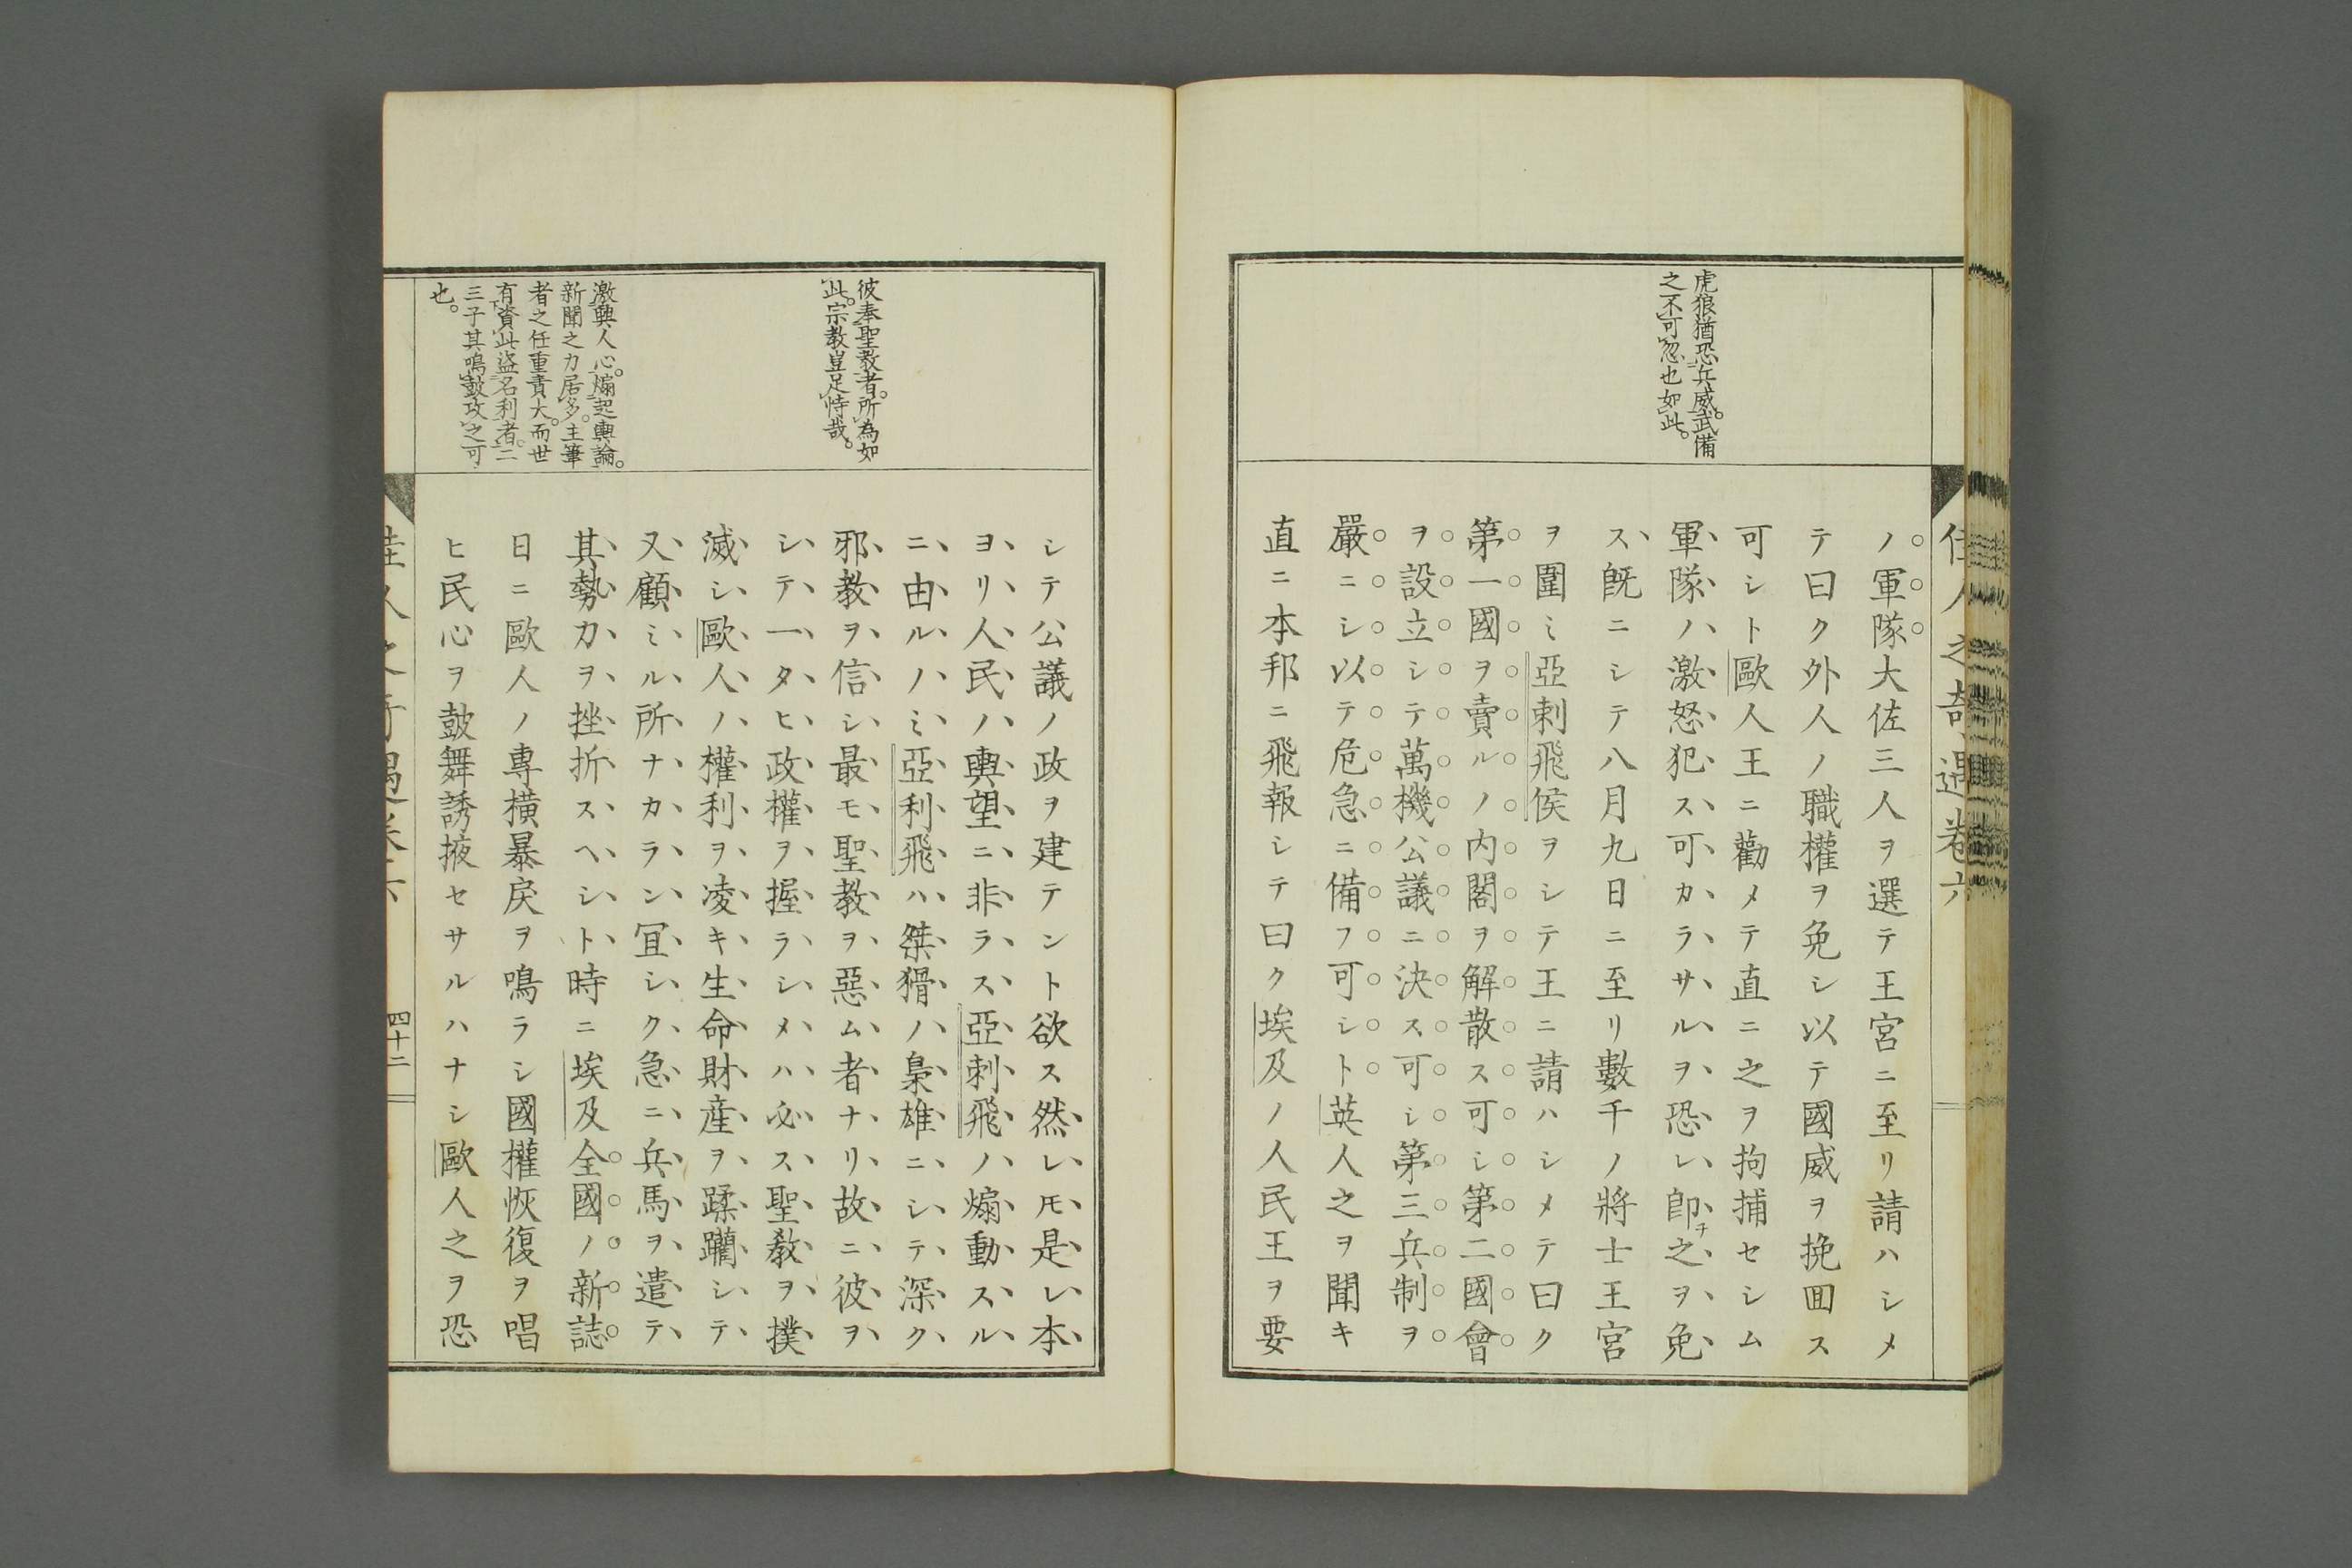 佳人之奇遇卷六
虎狼猶恐兵威。武備
之不可忽也如此。
ノ軍隊大佐三人ヲ選テ王宮ニ至リ請ハシメ
テ曰ク外人ノ職權ヲ免シ以テ國威ヲ挽回ス
可シト歐人王ニ勸メテ直ニ之ヲ拘捕セシム
軍隊ノ激怒犯ス可カラサルヲ恐レ卽チ之ヲ免
ス旣ニシテ八月九日ニ至リ數千ノ將士王宮
ヲ圍ミ亞剌飛侯ヲシテ王ニ請ハシメテ曰ク
第一國ヲ賣ルノ内閣ヲ解散ス可シ第二國會
ヲ設立シテ萬機公議ニ決ス可シ第三兵制ヲ
嚴ニシ以テ危急ニ備フ可シト英人之ヲ聞キ
直ニ本邦ニ飛報シテ曰ク埃及ノ人民王ヲ要
彼奉聖敎者。所為如
此。宗教豈足恃哉。
激興人心。煽起輿論。
新聞之力居多。主筆
者之任重責大。而世
有資此盜名利者。二
三子其鳴鼓攻之可
也。
シテ公議ノ政ヲ建テント欲ス然レ𪜈是レ本
ヨリ人民ノ輿望ニ非ラス亞刺飛ノ煽動スル
ニ由ルノミ亞利飛ハ桀猾ノ梟雄ニシテ深ク
邪教ヲ信シ最モ聖教ヲ惡ム者ナリ故ニ彼ヲ
シテ一タヒ政權ヲ握ラシメハ必ス聖敎ヲ撲
滅シ歐人ノ權利ヲ凌キ生命財産ヲ蹂躙シテ
又顧ミル所ナカラン冝シク急ニ兵馬ヲ遣テ
其勢力ヲ挫折スヘシト時ニ埃及全國ノ新誌
日ニ歐人ノ專横暴戾ヲ鳴ラシ國權恢復ヲ唱
ヒ民心ヲ鼓舞誘掖セサルハナシ歐人之ヲ恐
佳人之奇遇卷六
四十二